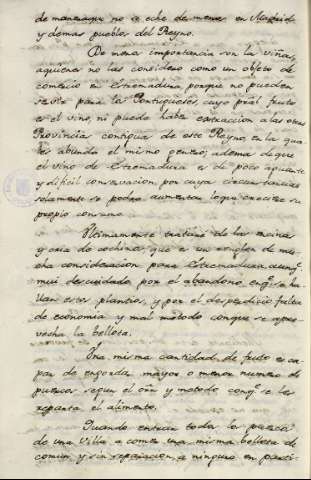 de manera qu no se eche de menos en Madrid
y demas pueblos del Reyno.
De menos importancia son las viñas,
aquienes no las considero como un objeto de
comercio en Estremadura, porque no pueden
servir para los Portugueses, cuyo pral fruto
es el vino, ni puede haber extraccion a las otras
Provincias contiguas de este Reyno, en las qua
les abunda el mismo genero; ademas de que
el vino de Estremadura es de poco aguante
y dificil conservacion, por cuyas circunstancias
solamente se podra aumentar lo que exceda su
propio consumo.
Ultimamente trataré de la encina
y cria de cochinos, que es un renglon de mu-
cha consideracion para Estremadura, aunq.e
mui descuidado por el abandono enq.e se ha
llan estos plantios, y por el desperdicio falta
de economia y mal metodo conque se apro-
vecha la bellota.
Una misma cantidad de fruto es ca-
paz de engordar mayor o menor numero de
puercos segun el año y metodo conq.e se les
reparta el alimento.
Quando entran todos los puercos
de una Villa a comer una misma bellota de
comun, y sin separacion a ninguno en parti-